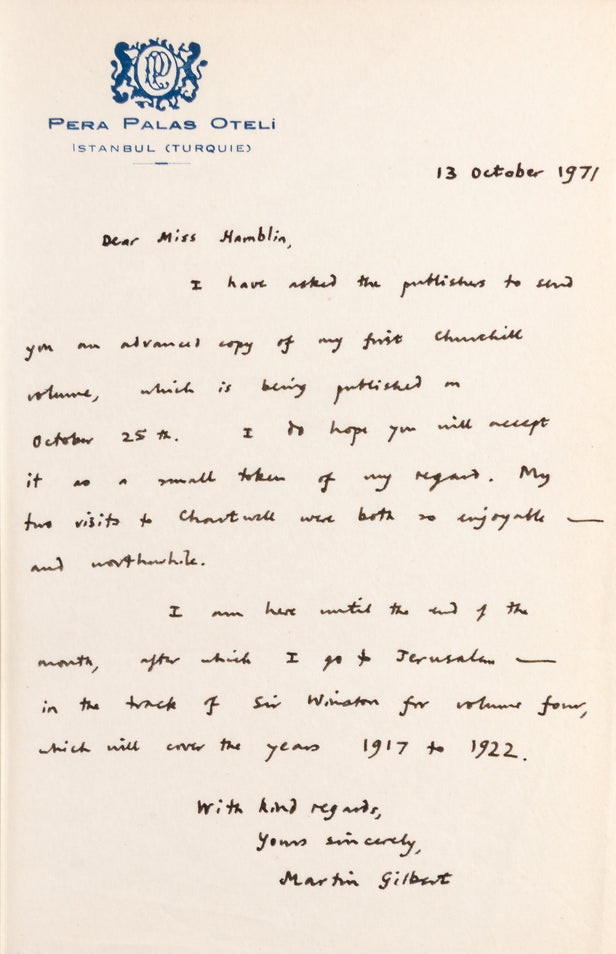 PERA PALAS OTELİ
İSTANBUL (TURQUIE)
13 October 1971
Dear Miss Hamblin,
I have asked the publishers to send
you an advanced copy of my first Churchill
volume, which is being published on
October 25 th. I do hope you will accept
it as a small token of my regard. My
two visits to Chartwell were both so enjoyable —
and worthwhile.
I am here until the end of the
month, after which I go to Jerusalem —
in the track of Sir Winston for volume four,
which will cover the years 1917 to 1922.
With kind regards,
Yours sincerely,
Martin Gilbert